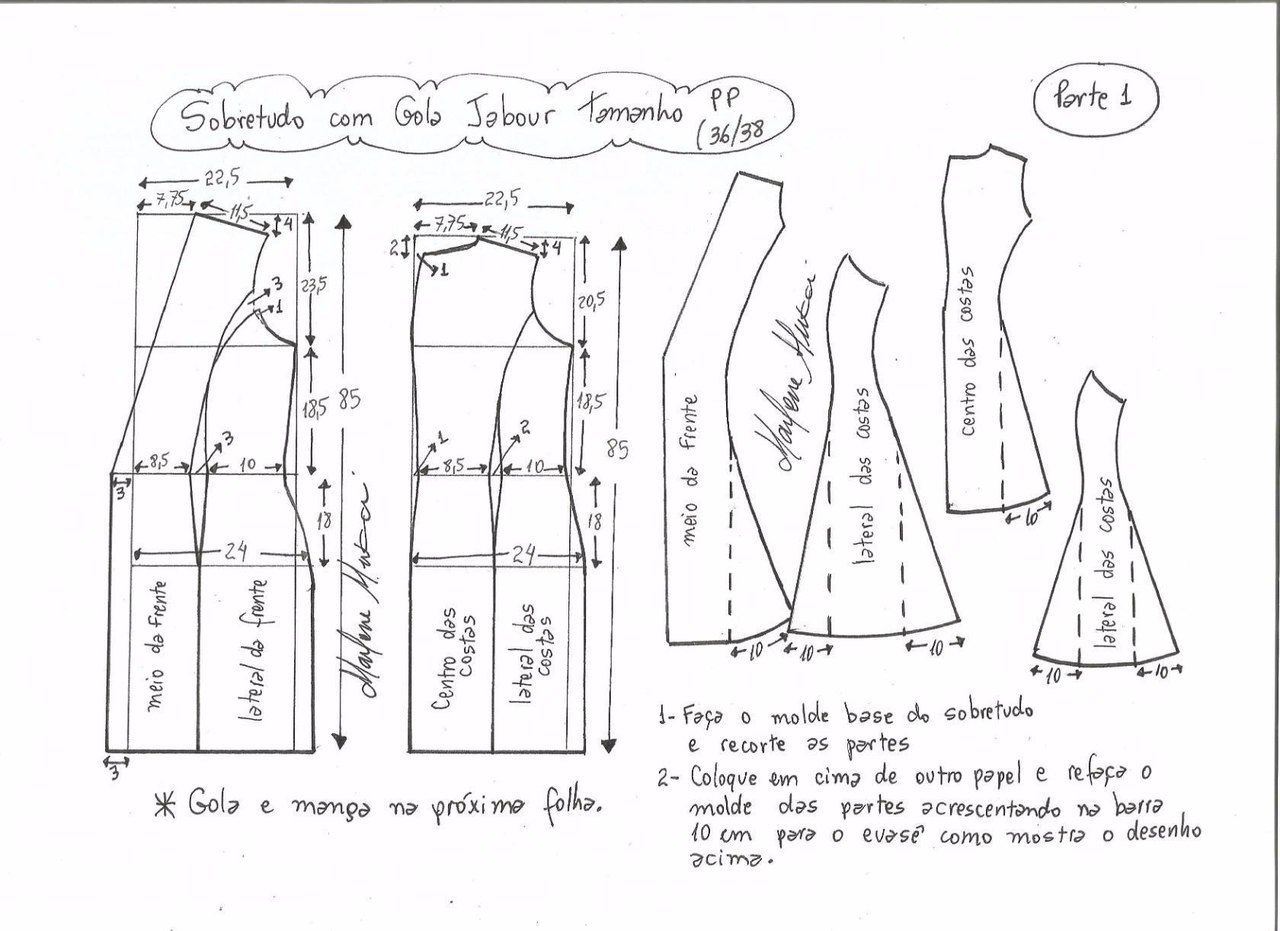 Sobretudo com Gola Jabour Tamanho PP
(36/38
Parte 1
22,5
7,75
11,5
4
3
1
23,5
18,5
85
8,5
3
10
3
18
24
meio da frente
lateral da frente
3
Marlene Mukai
22,5
7,75
11,5
2
4
1
20,5
18,5
85
1
2
8,5
10
18
24
Centro das
costas
lateral das
costas
meio da frente
10
Marlene Mukai
lateral das costas
10
10
centro das costas
10
lateral das costas
10
10
* Gola e manga na próxima folha.
1- Faça o molde base do sobretudo
e recorte as partes
2- Coloque em cima de outro papel e refaça o
molde das partes acrescentando na barra
10 cm para o evasê como mostra o desenho
acima.